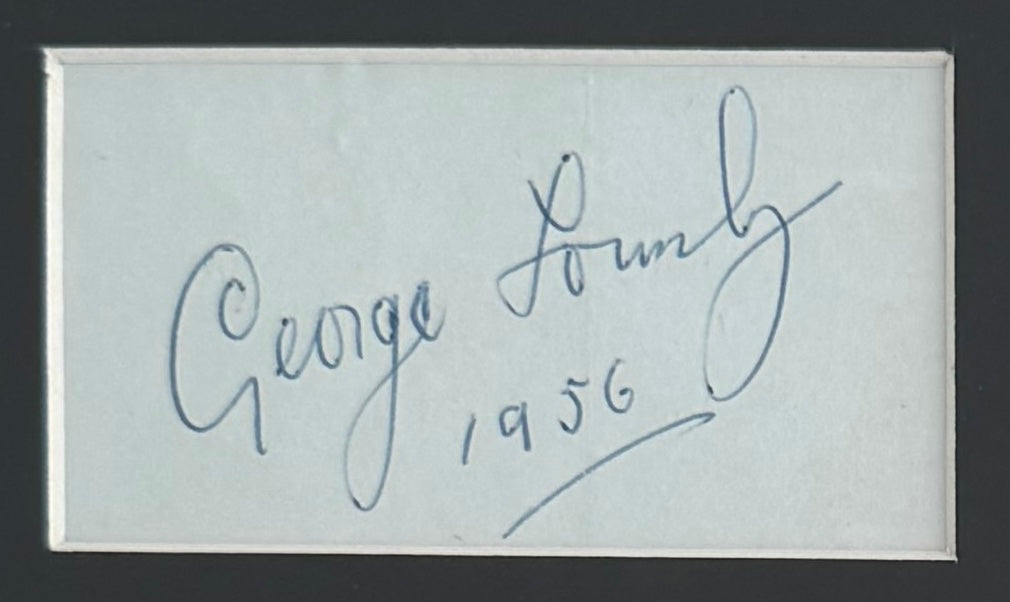 George Formby
1956